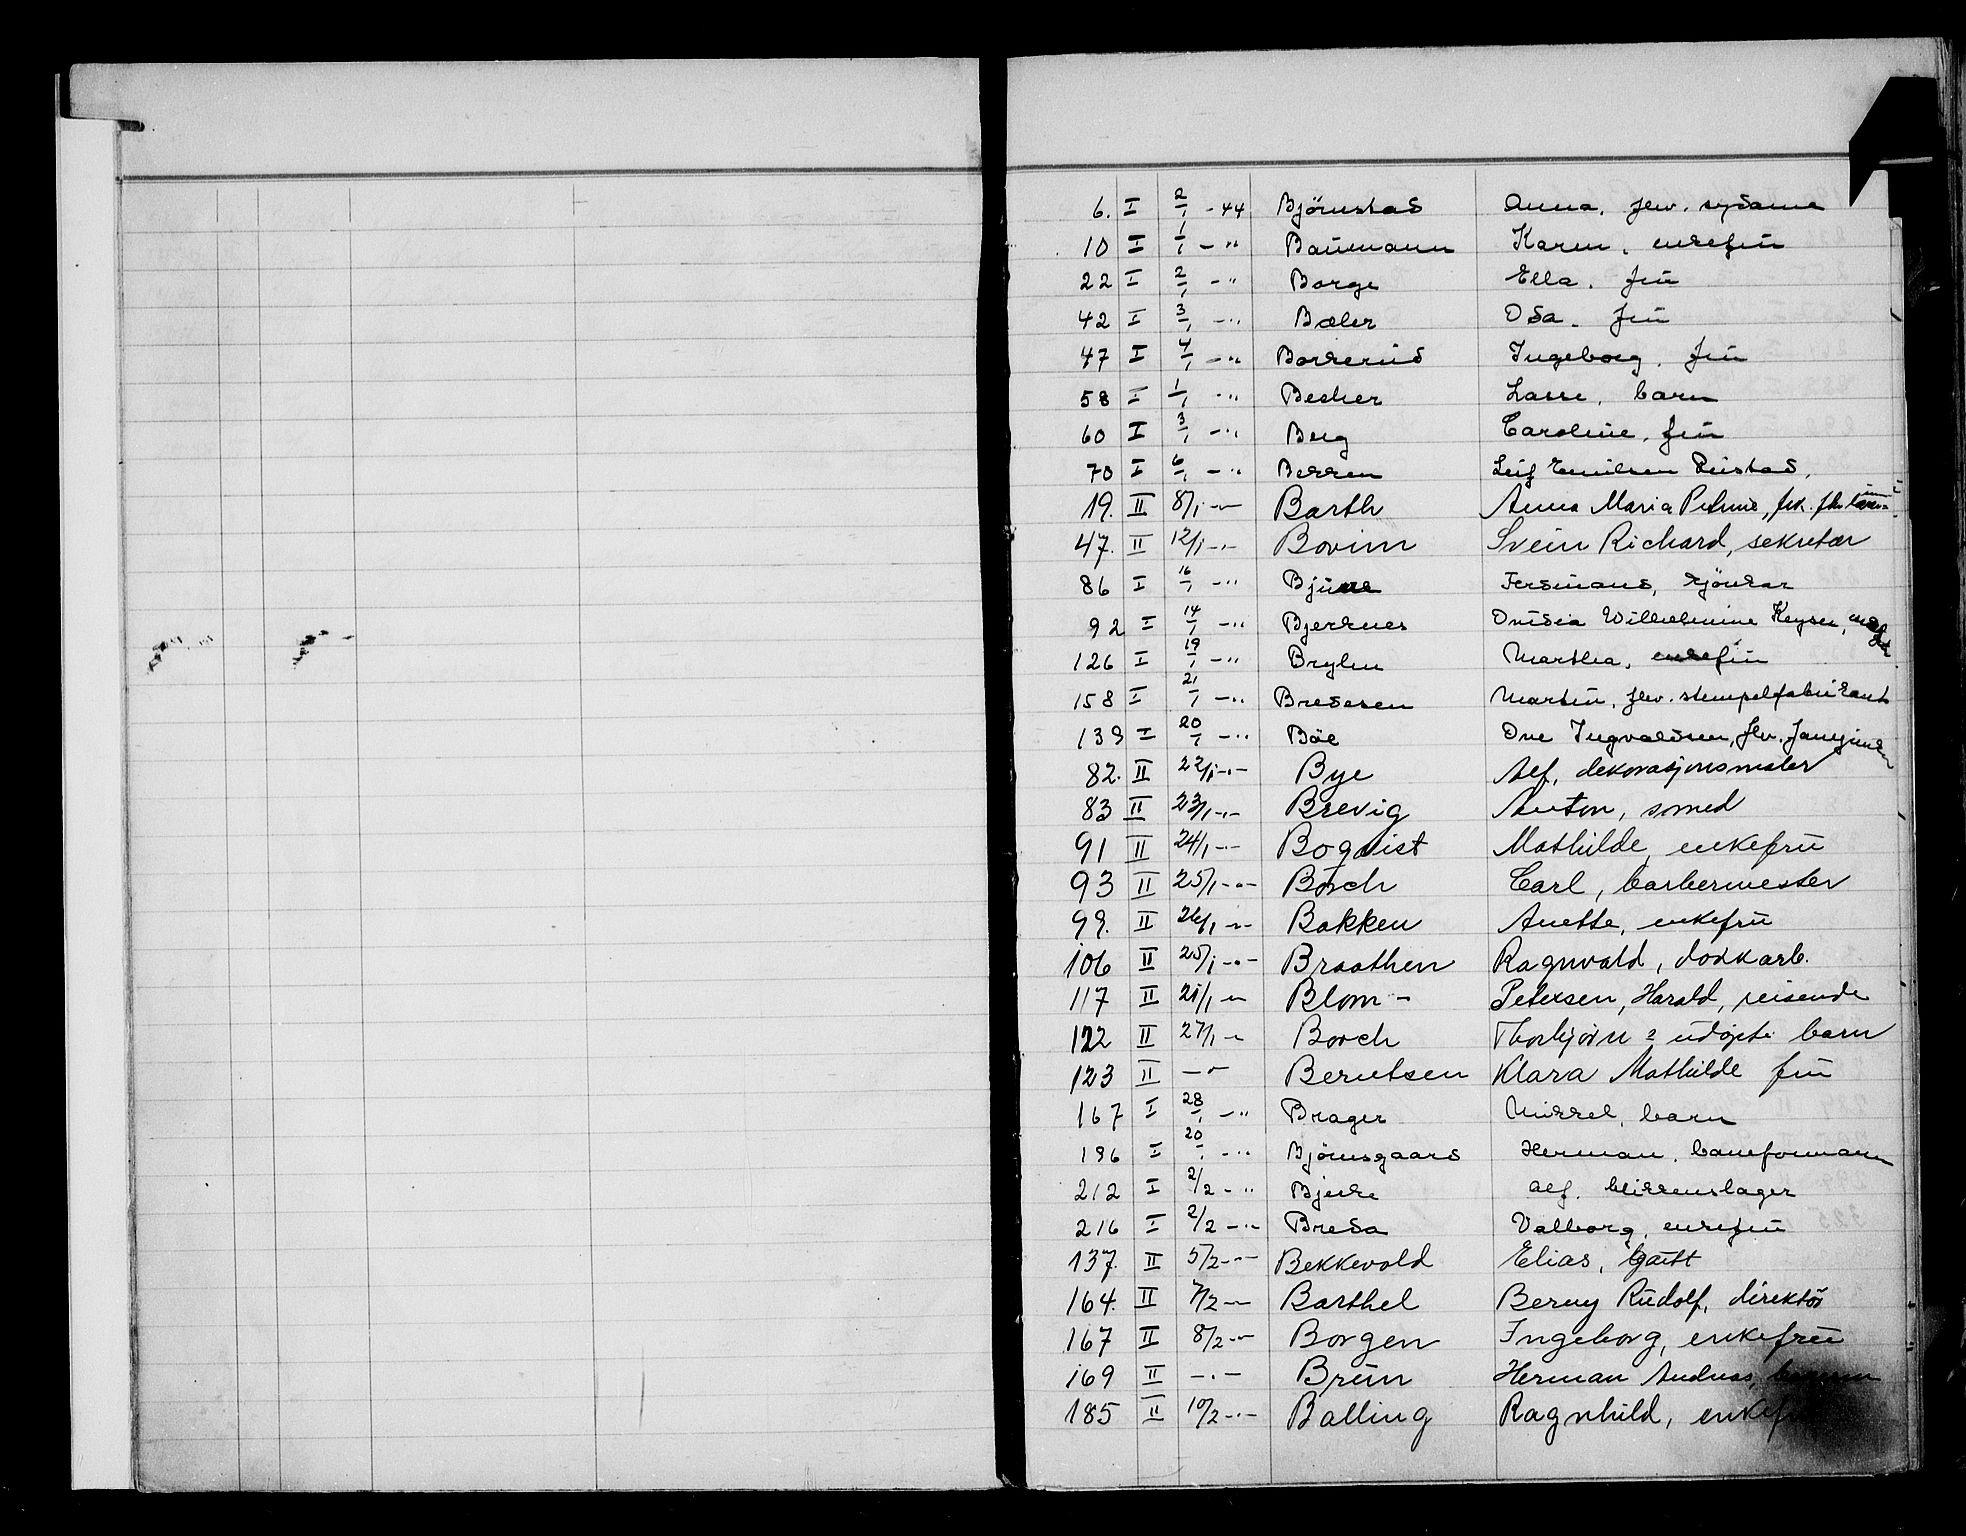 6. I 2/1 - 44 Björnstad Anna, fhv. sydame
10 I 1/1 - " Baumann Karen, enkefru
22 I 2/1 - " Borge Ella, fru
42 I 3/1 - " Bæler Oda, fru
47 I 4/1 - " Borkerud Ingeborg, fru
58 I 1/1 - " Becher Lasse, barn
60 I 3/1 - " Berg Caroline, fru
70 I 6/1 - " Berken Leif Emilsen
19. II 8/1 -"- Barth Anna Maria
47. II 12/1 -"- Bovim Svein Richard, sekretær
86 I 16/1 - " Ferdinand,
92 I 14/1 - " Bjerknes Ovidia Wilhelmine Keyser,
126 I 19/1 - " Brylen Martha, enkefru
158 I 21/1 - " Bredesen Martin, fhv. stempelfabrikant
139 I 20/1 - " Böe Ove Ingvaldsen, fhv.
82. II 22/1 -"- Bye Alf, dekorasjonsmaler
83 II 23/1 -"- Brevig Anton, smed
91 II 24/1 -"- Boqvist Mathilde, enkefru
93 II 25/1 -"- Borch Carl, barbermester
99. II 26/1 -"- Bakken Anette, enkefru
106 II 25/1 -"- Braathen Ragnvald, dokkarb.
117 II -"- Blom - Petersen, Harald, reisende
122 II 27/1 -"- Borch Thorbjörn 2 udöpte barn
123 II -"- Berntsen Klara Mathilde fru
167 I 28/1 - " Brager Mikkel, barn
196 I 20/1 - " Björnsgaard Herman, baneformann
212 I 2/2 - " Bjerke Alf, blikkenslager
216 I 2/2 - " Breda Valborg, enkefru
137. II 5/2 -"- Bekkevold Elias,
164. II 7/2 -"- Barthel Berny Rudolf, direktör
167 II 8/2 -"- Borgen Ingeborg, enkefru
169 II -"- Brun Herman Andreas,
185 II 10/2 -"- Balling Ragnhild, enkefru